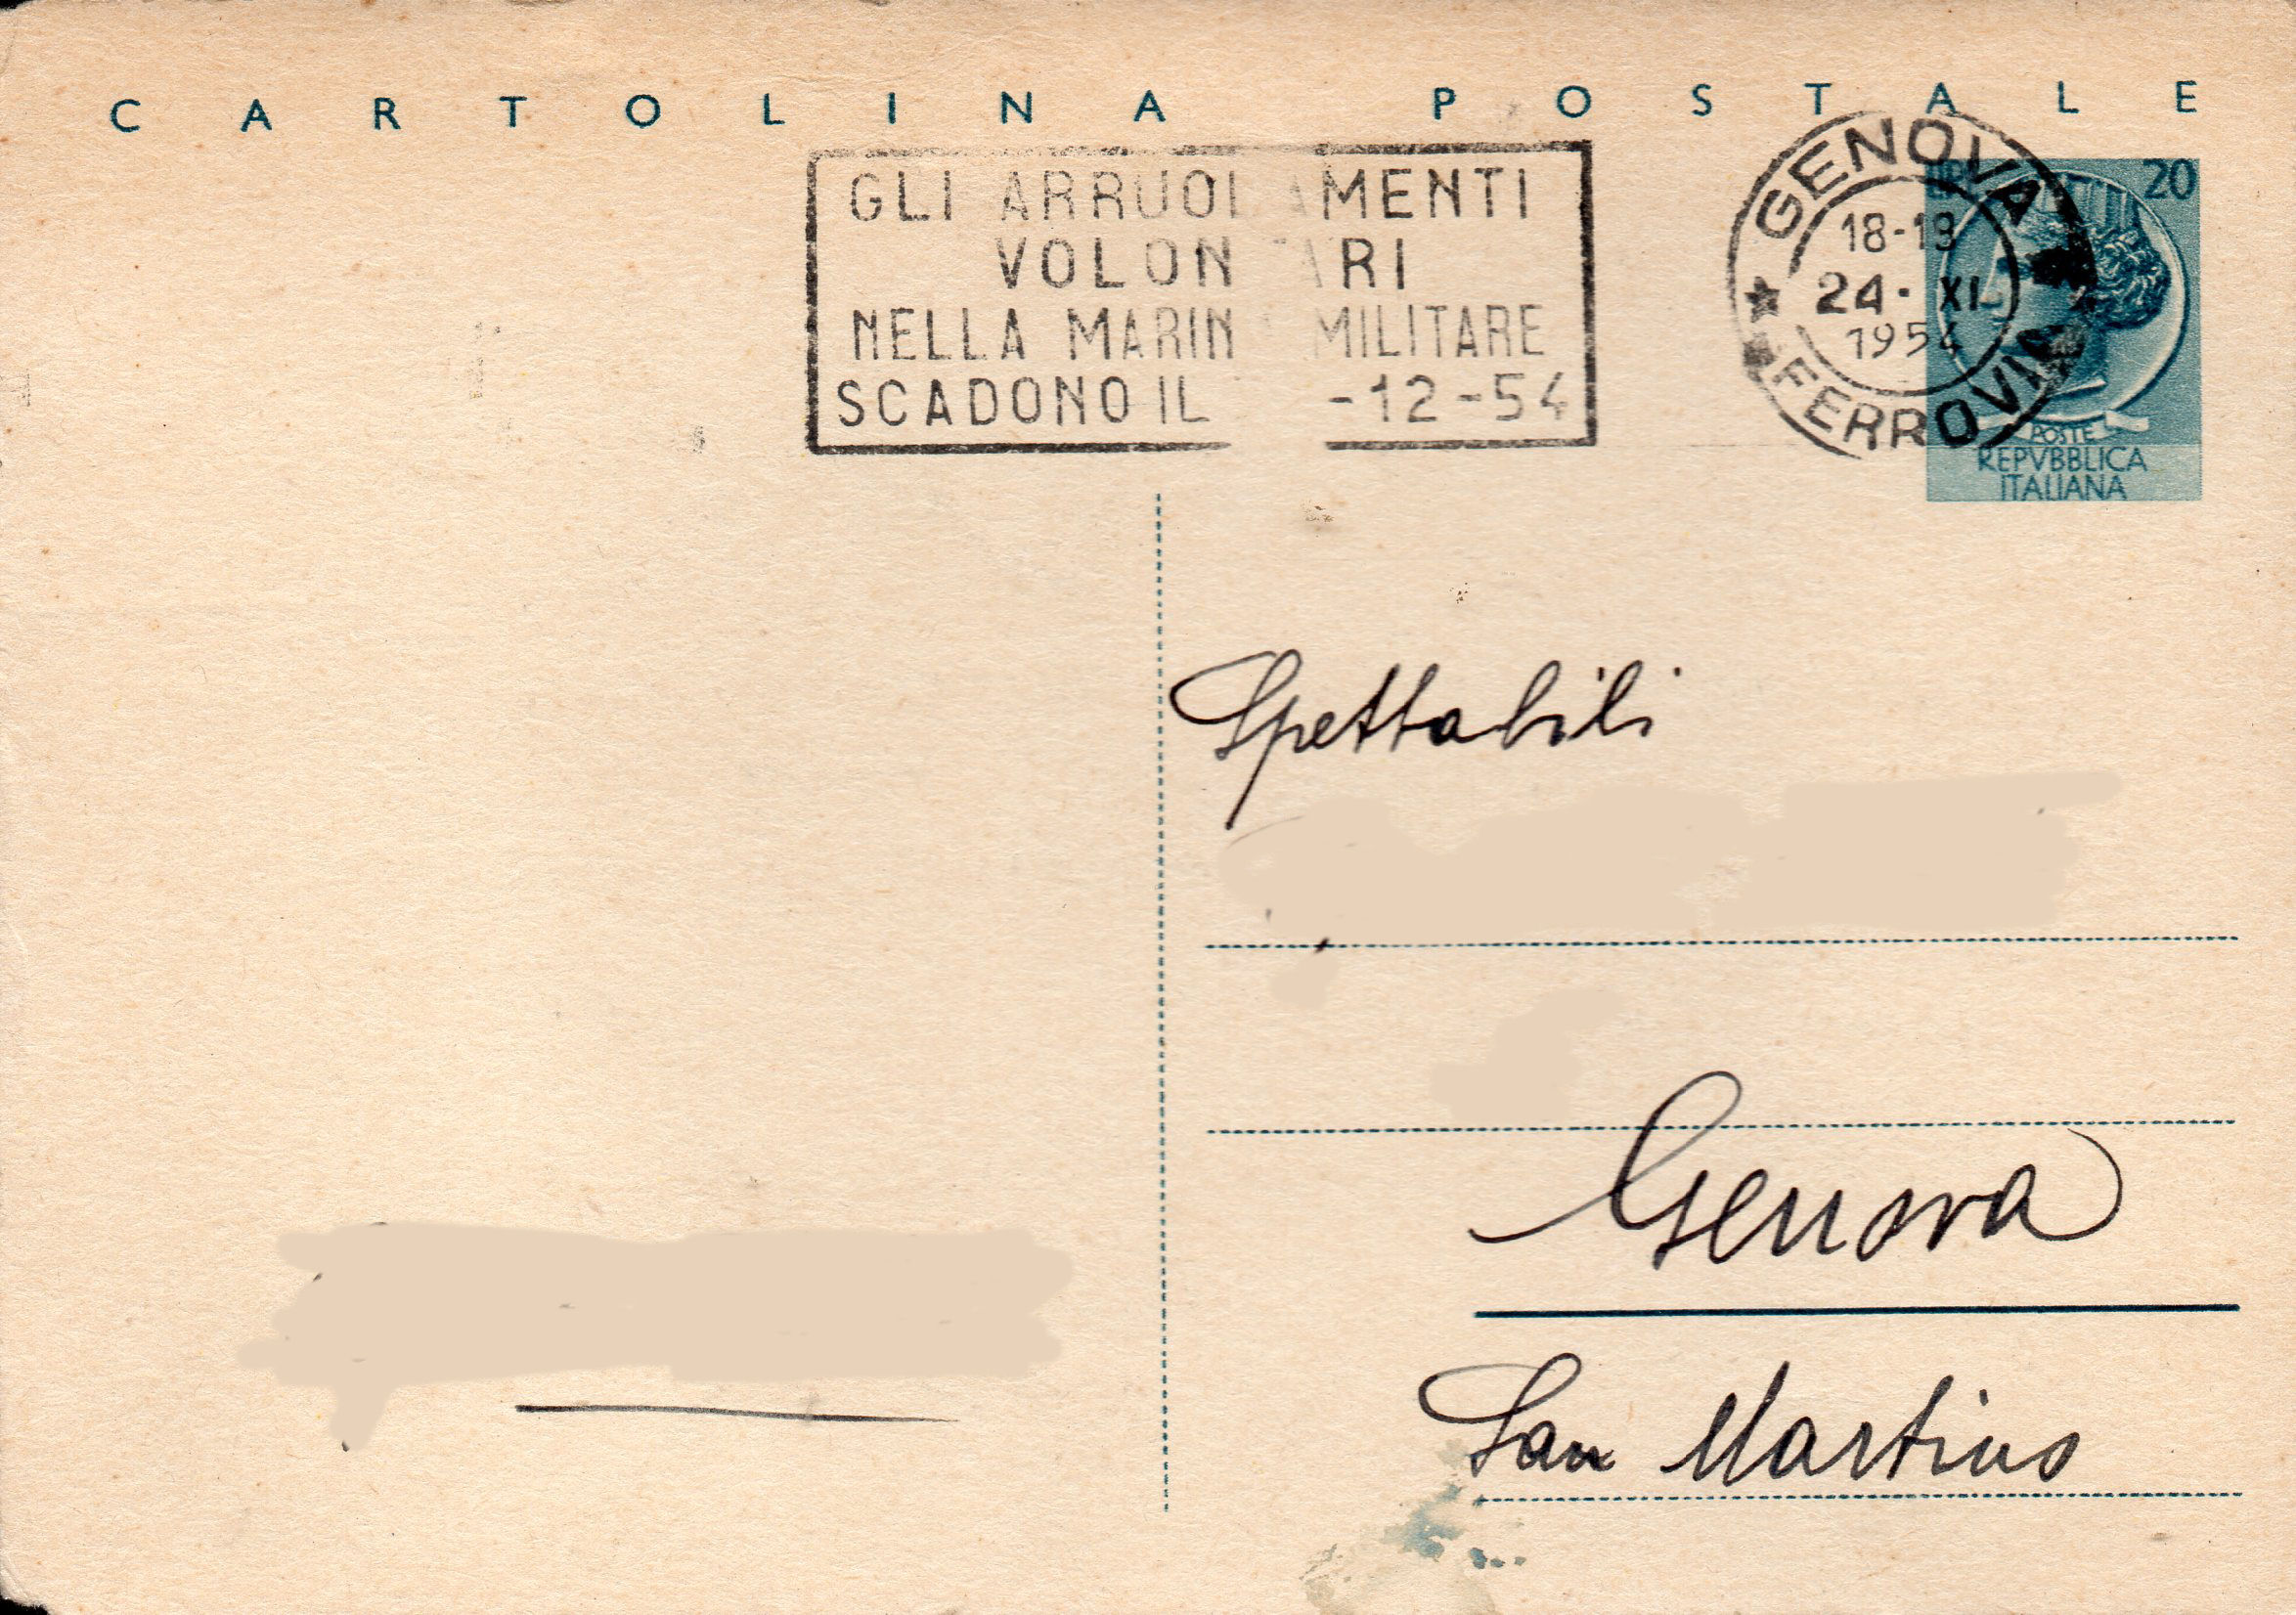 CARTOLINA POSTALE
GLI ARRUOLAMENTI
VOLONTARI
NELLA MARINA MILITARE
SCADONO IL -12-54
GENOVA
18-19
24 · XI
1954
FERROVIA
20
POSTE
REPVBBLICA
ITALIANA
Spettabili
Genova
San Martino